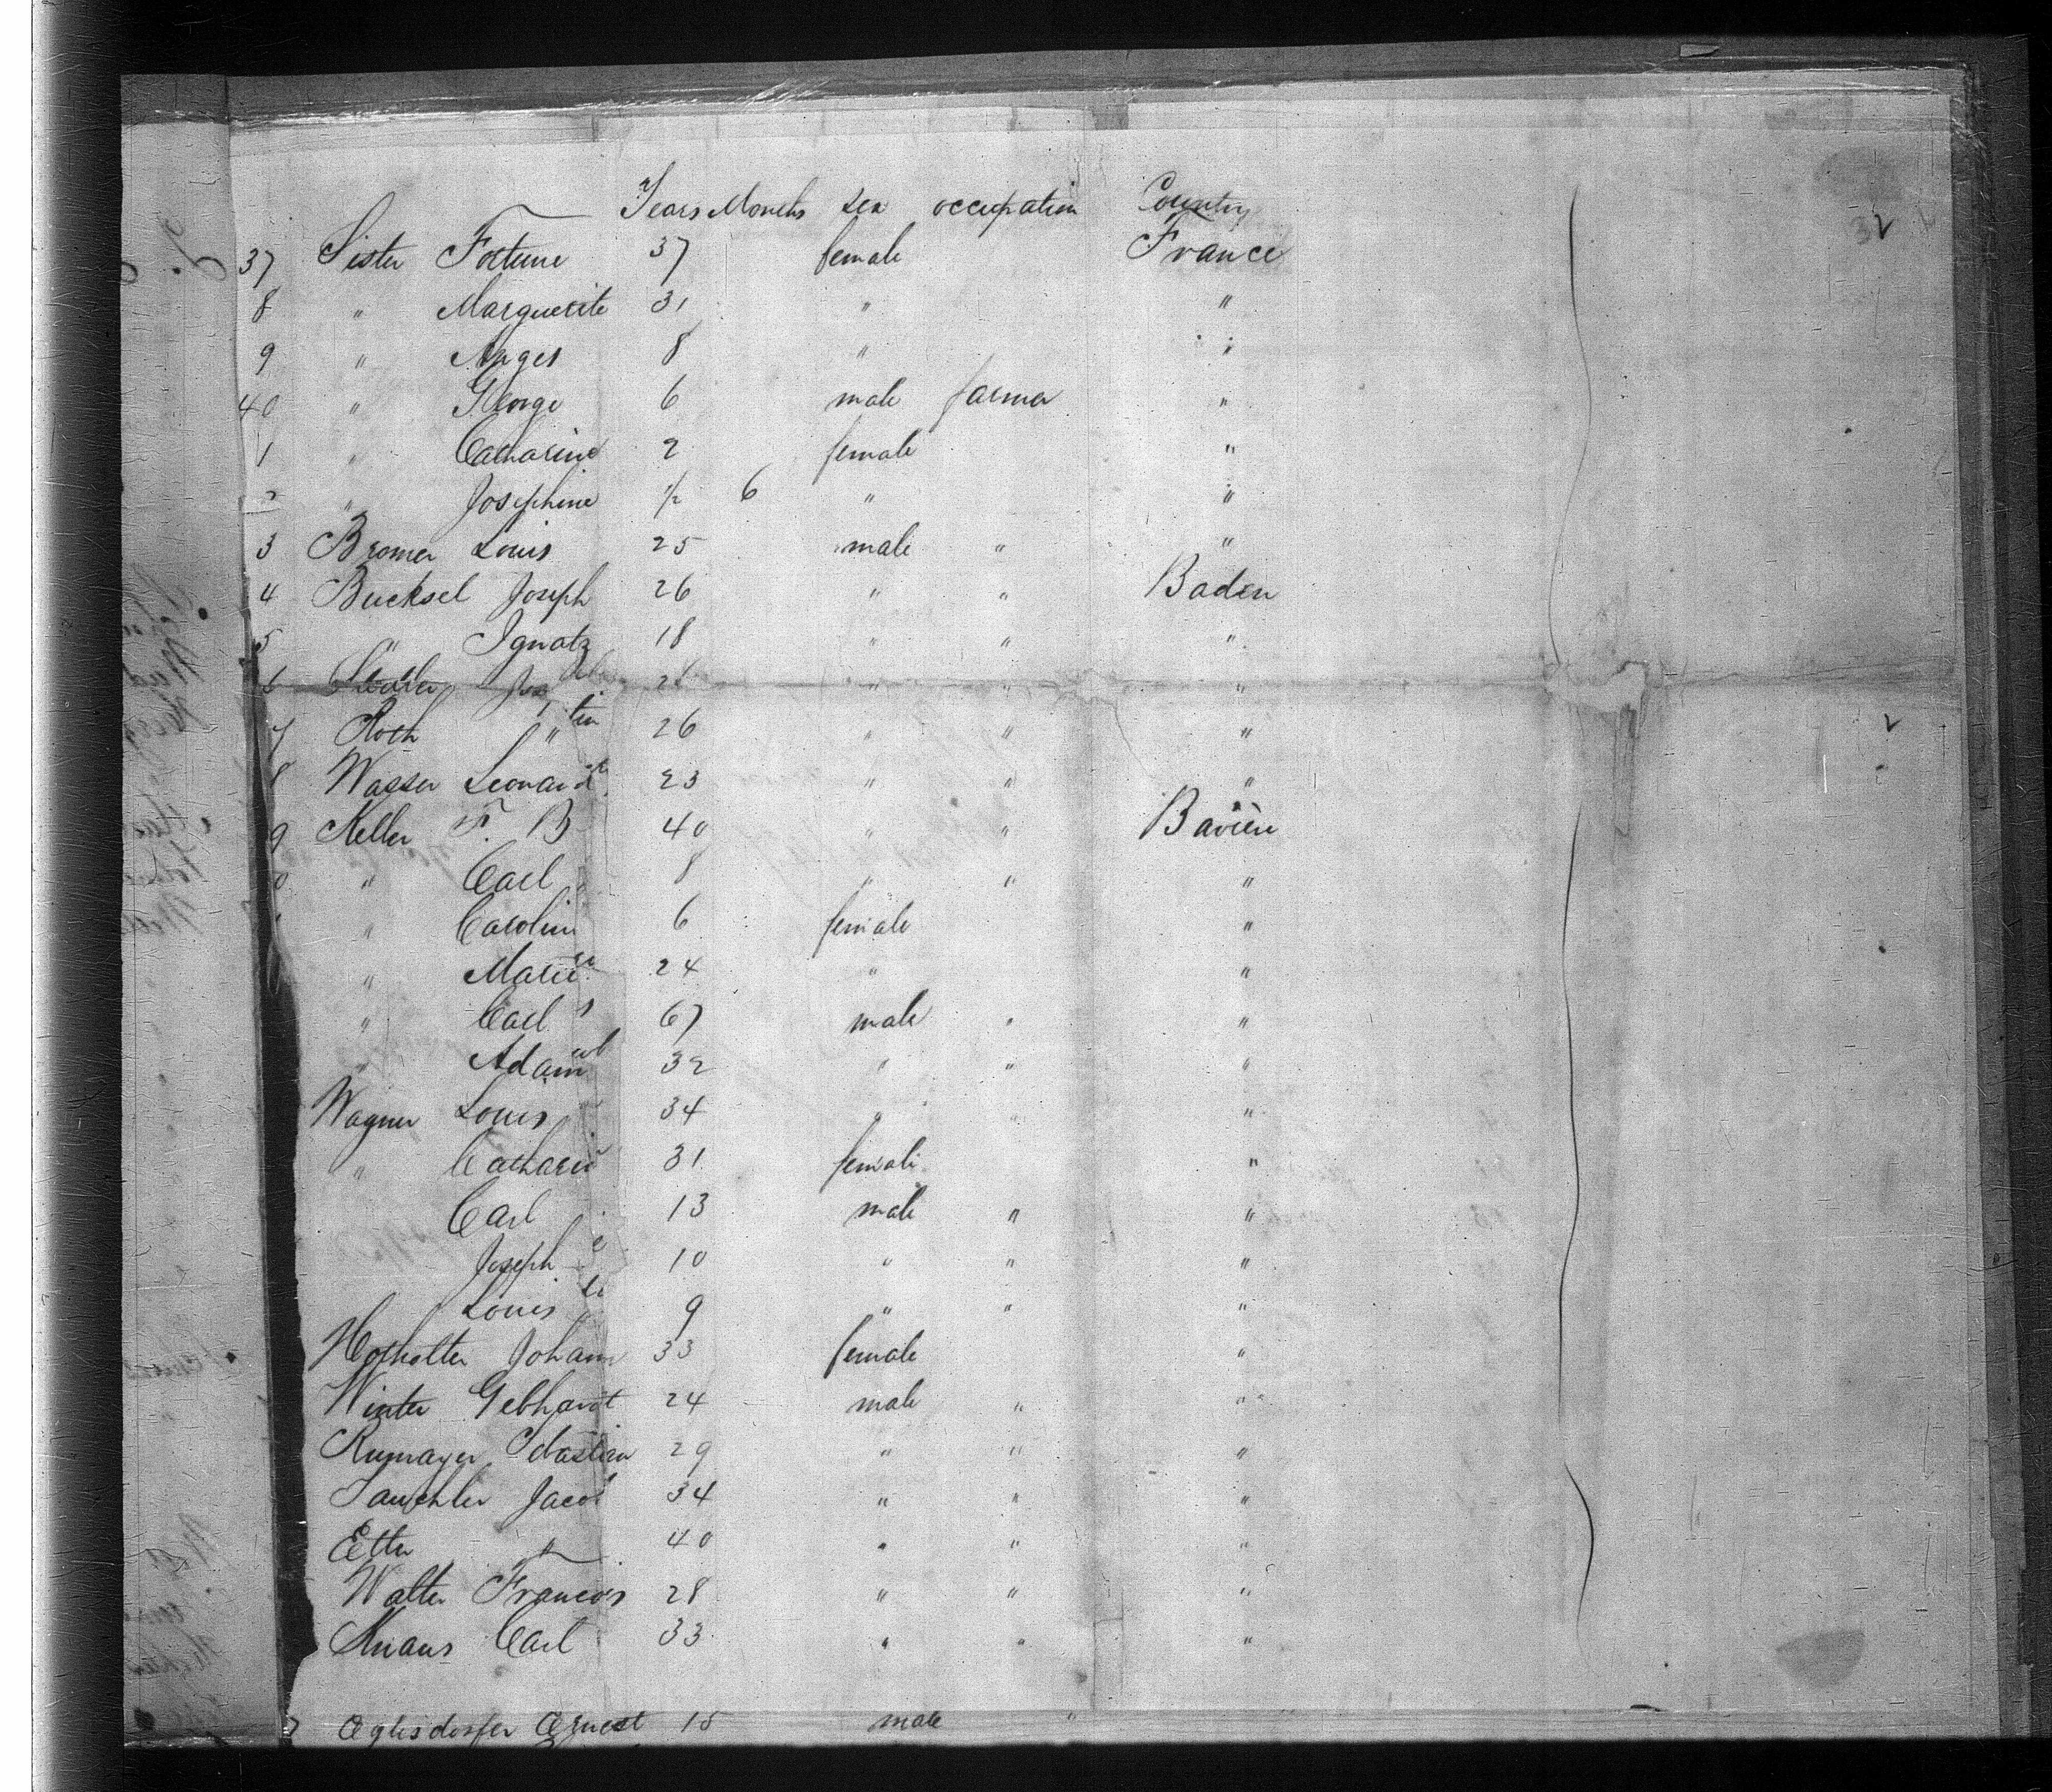 Years Months sex occupation Country
37 Sister Fortune 37 female France
8 " Marguerite 31 " "
9 " Anges 8 " "
40 " George 6 male farmer "
1 " Catharine 2 female "
2 " Josephine 1/2 6 " "
3 Bromer Louis 25 male " "
4 Bucksel Joseph 26 " " Baden
5 " Ignatz 18 " " "
6 " " "
7 Roth " 26 " " "
8 Wasser Leonard 23 " " "
9 Keller F. B 40 " " Bavière
0 " Carl 8 " " "
" Carolin 6 female "
" Marie 24 " "
" Carl 67 male " "
" Adam 32 " " "
Wagner Louis 34 " " "
" Catharin 31 female "
Carl 13 male " "
Joseph 10 " " "
Louis 9 " " "
Johann 33 female "
Winter Gebhardt 24 male " "
Rumayer Sebastian 29 " " "
Jacob 34 " " "
Etter " 40 " " "
Walter Francois 28 " " "
Knaus Carl 33 " " "
Eglesdorfer Ernest 15 male "